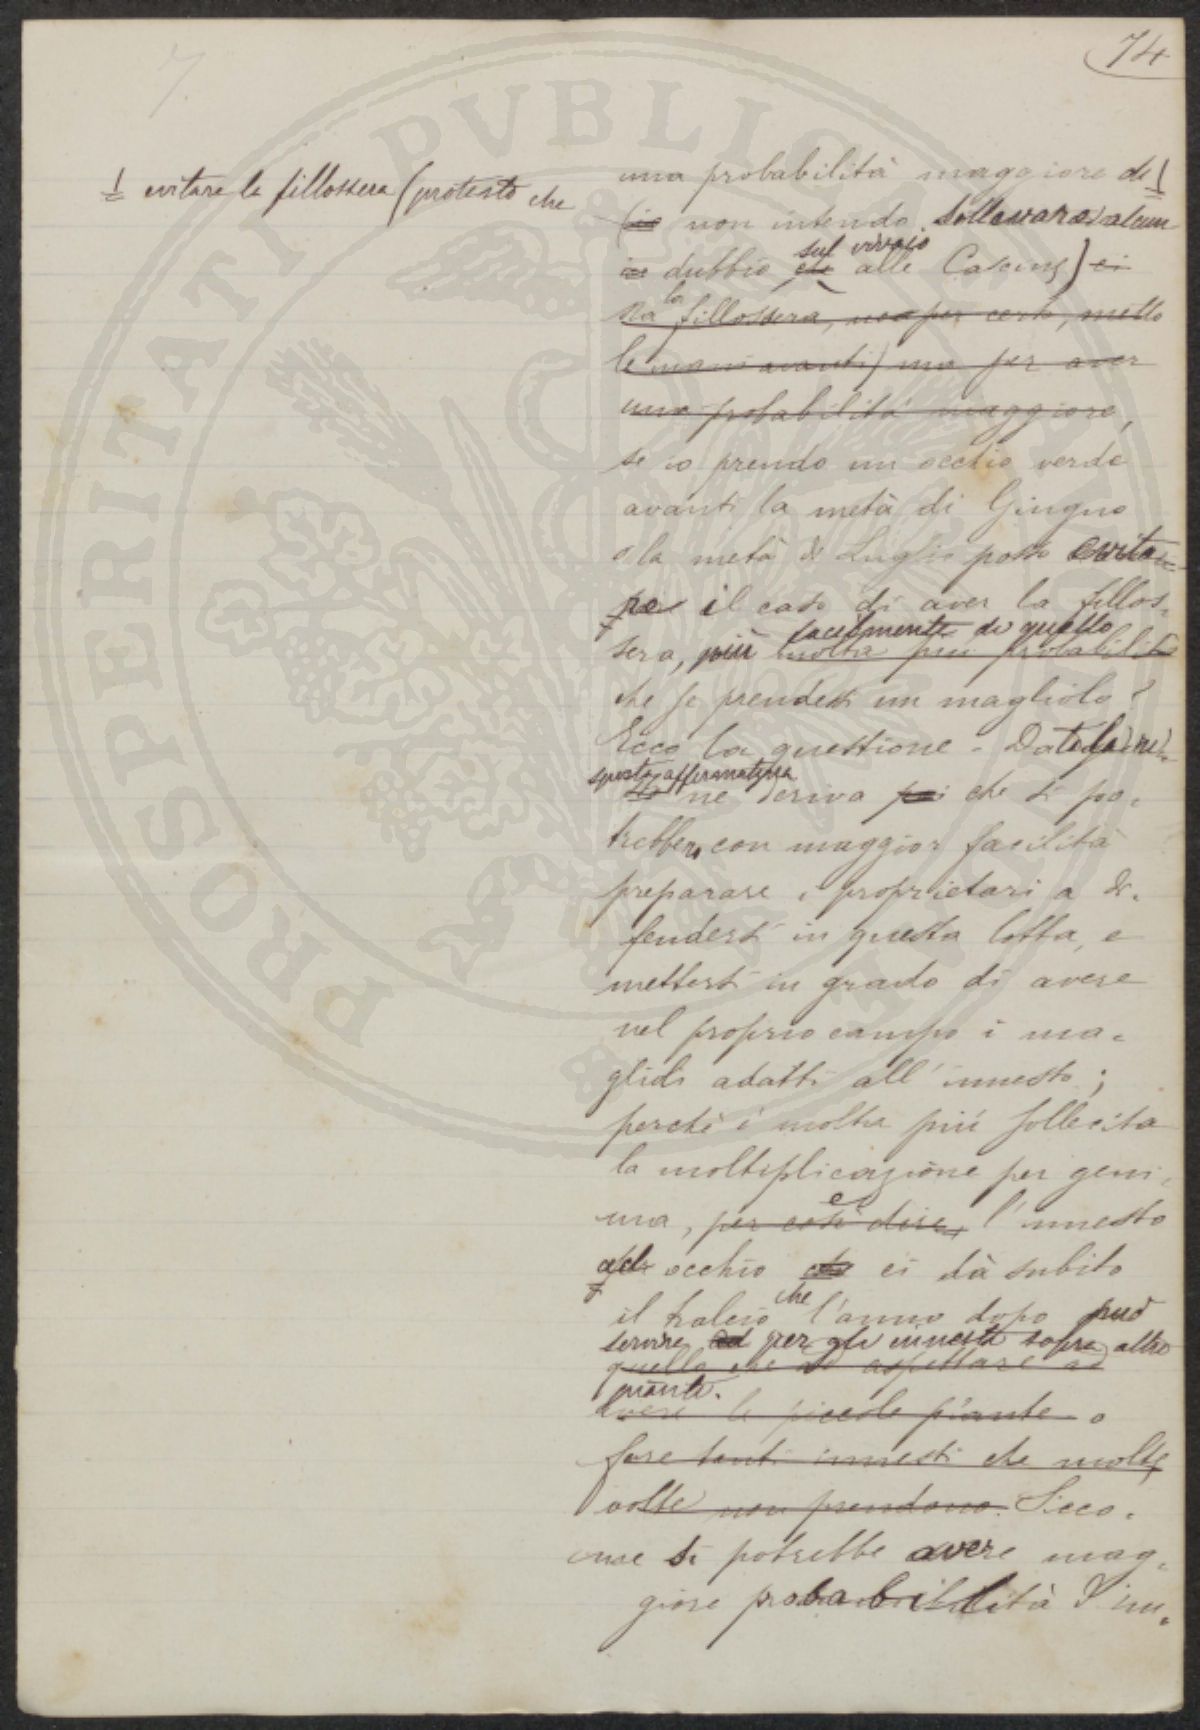 74
7
1 evitare la fillossera (protesto che
una probabilità maggiore di 1
(io non intendo sollevare alcun
in dubbio che sul vivaio alle Cascine) ci
sia la fillossera, no per certo, metto
le mani avanti) ma per aver
una probabilità maggiore,
se io prendo un occhio verde
avanti la metà di Giugno
o la metà di Luglio posso evita-
re il caso di aver la fillos-
facilmente di quello
sera, più molta più probabilità
che se prendessi un magliolo?
Ecco la questione - Data la ri-
sposta affermativa
ne deriva poi che si po-
trebbero con maggior facilità
preparare i proprietari a di-
fendersi in questa lotta, e
mettersi in grado di avere
nel proprio campo i ma-
glioli adatti all'innesto;
perchè è molto più sollecita
la moltiplicazione per gem-
ma, per così dire, e l'innesto
ad occhio che ci dà subito
il tralcio che l'anno dopo può
servire ad per gli innesti sopra altre
quello che ad aspettare ad
piante.
avere le piccole piante o
fare tanti innesti che molte
volte non prendono. Sicco-
me si potrebbe avere mag-
giore probabilità d'im-
PROSPERITATI PVBLICAE